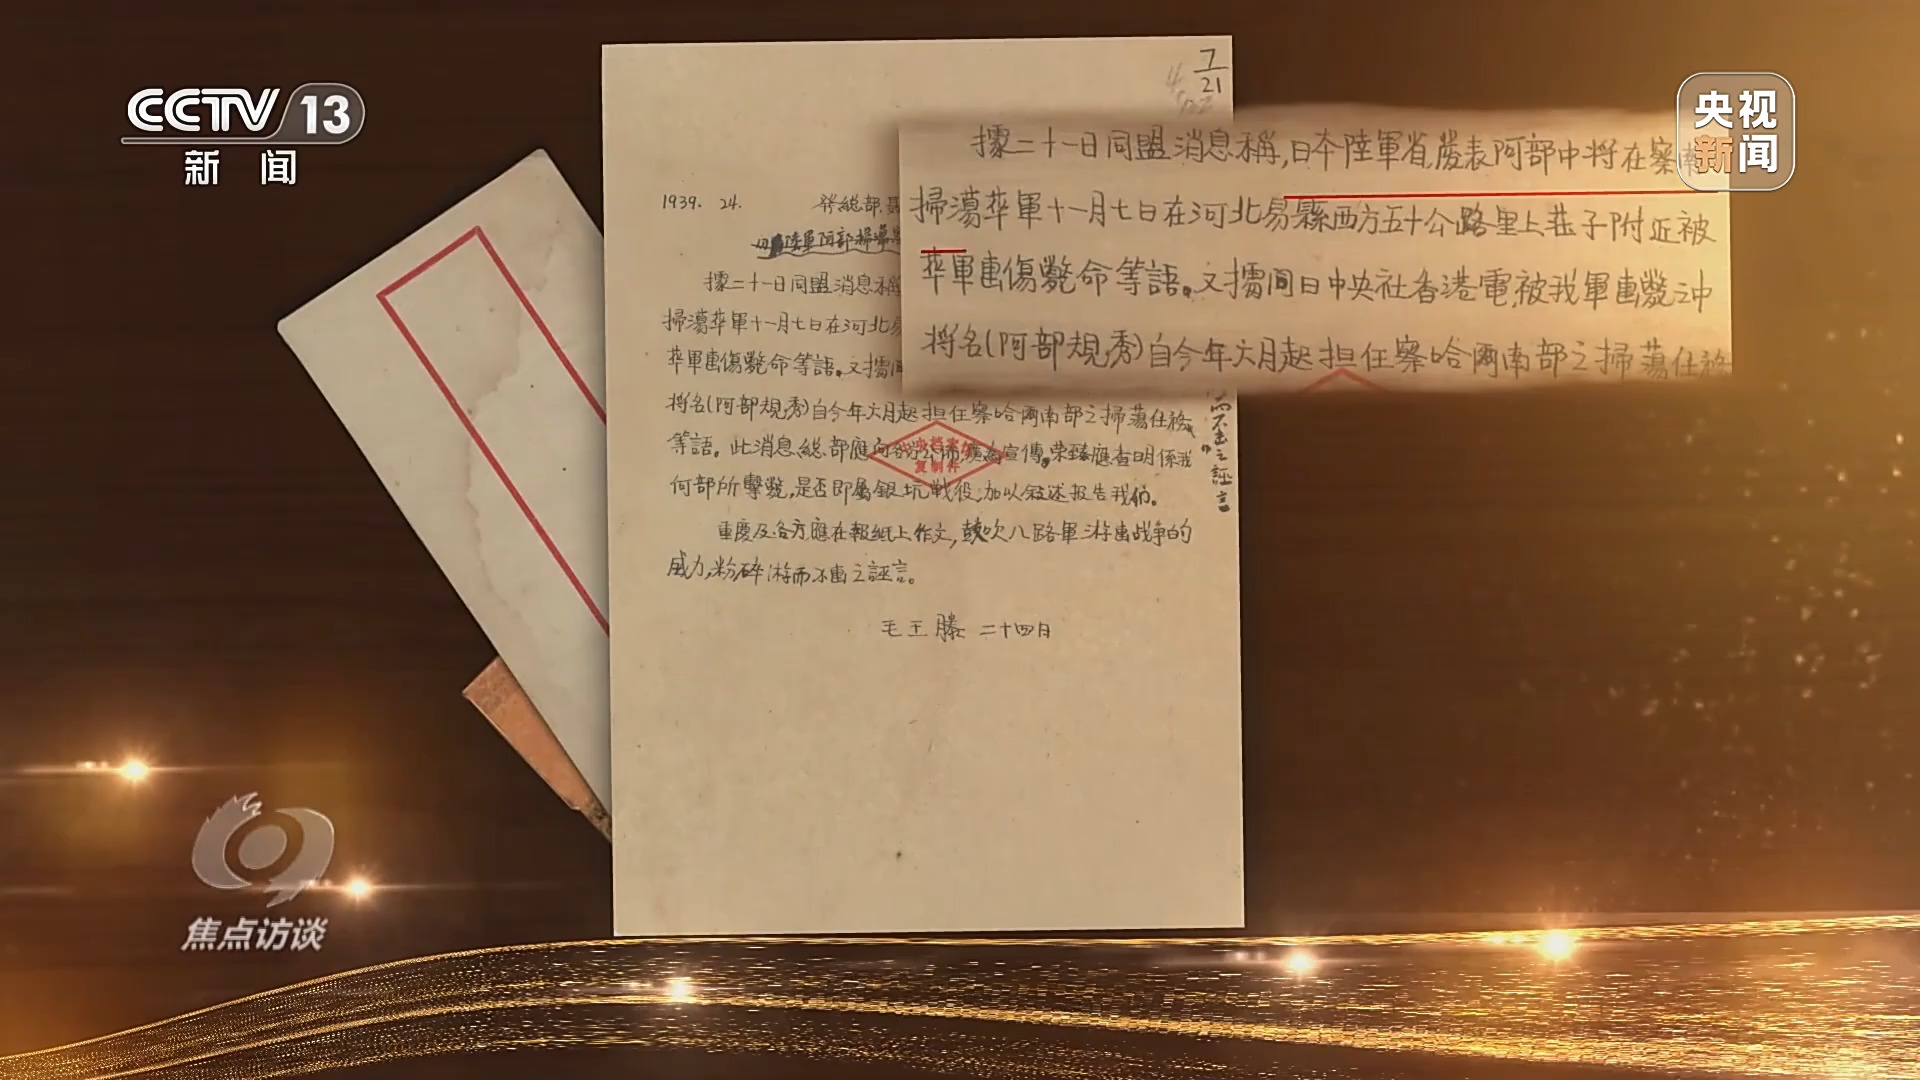 CCTV 13
新 闻
央视
新闻
7
21
1939. 24.
據二十一日同盟消息稱,日本陸軍省發表阿部中将在察南
掃蕩華軍十一月七日在河北易縣西方五十公路里上荘子附近被
華軍击傷斃命等語。又據间日中央社香港電,被我軍击斃之中
将名(阿部規秀)自今年六月起担任察哈爾南部之掃蕩任務
據二十一日同盟消息稱
掃蕩華軍十一月七日在河北易
華軍击傷斃命等語。又據间
将名(阿部規秀)自今年六月起担任察哈爾南部之掃蕩任務
等語。此消息總部應向各方公佈擴為宣傳。荣臻應查明係我
何部所擊斃,是否即屬銀坑戦役,加以叙述报告我们。
重慶及各方應在報紙上作文,鼓吹八路軍游击战争的
威力,粉碎游而不击之誣言。
毛王滕 二十四日
而不击之誣言
中央档案馆
复制件
焦点访谈